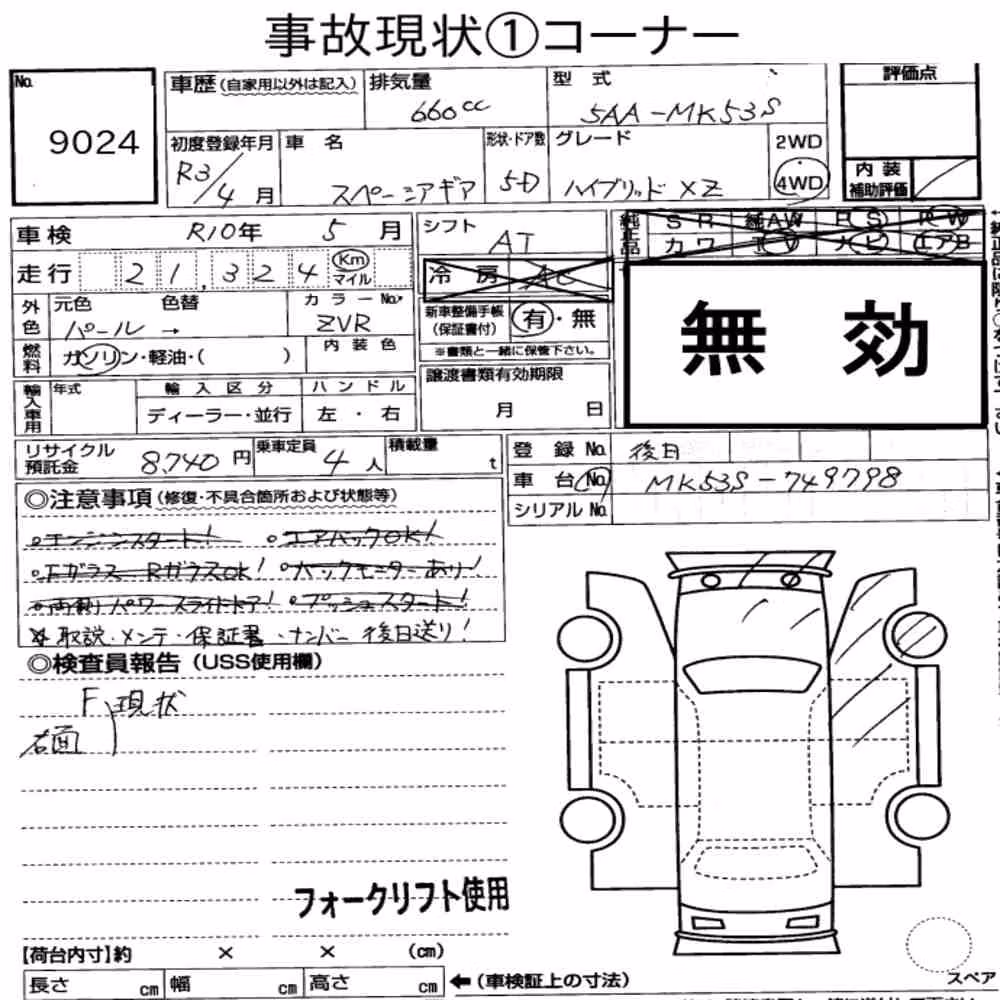 事故現状①コーナー
No.
9024
車歴(自家用以外は記入)
排気量
660cc
型式
5AA-MK53S
評価点
初度登録年月
R3/4月
車名
スペーシアギア
形状・ドア数
5-D
グレード
ハイブリッド XZ
2WD
4WD
内装
補助評価
車検 R10年 5月
シフト
AT
純正品
SR 純AW PS PW
カワ TV ナビ エアB
走行 21,324 Km
マイル
冷房 AC
無効
外色
元色 色替
パール →
カラーNo.
ZVR
新車整備手帳
(保証書付)
有・無
※書類と一緒に保管下さい。
燃料
ガソリン・軽油・( )
内装色
輸入車用
年式
輸入区分
ディーラー・並行
ハンドル
左・右
譲渡書類有効期限
月 日
リサイクル
預託金
8,740円
乗車定員
4人
積載量
t
登録No. 後日
車台No. MK53S-749798
シリアルNo.
◎注意事項(修復・不具合箇所および状態等)
○エンジンスタート! ○エアバックOK!
○Fガラス-RガラスOK! ○バックモニターあり!
○両側パワースライドドア! ○プッシュスタート!
取説・メンテ・保証書・ナンバー 後日送り!
◎検査員報告(USS使用欄)
F 現状
右面
フォークリフト使用
【荷台内寸】約 × × (cm)
長さ cm 幅 cm 高さ cm
←(車検証上の寸法)
スペア